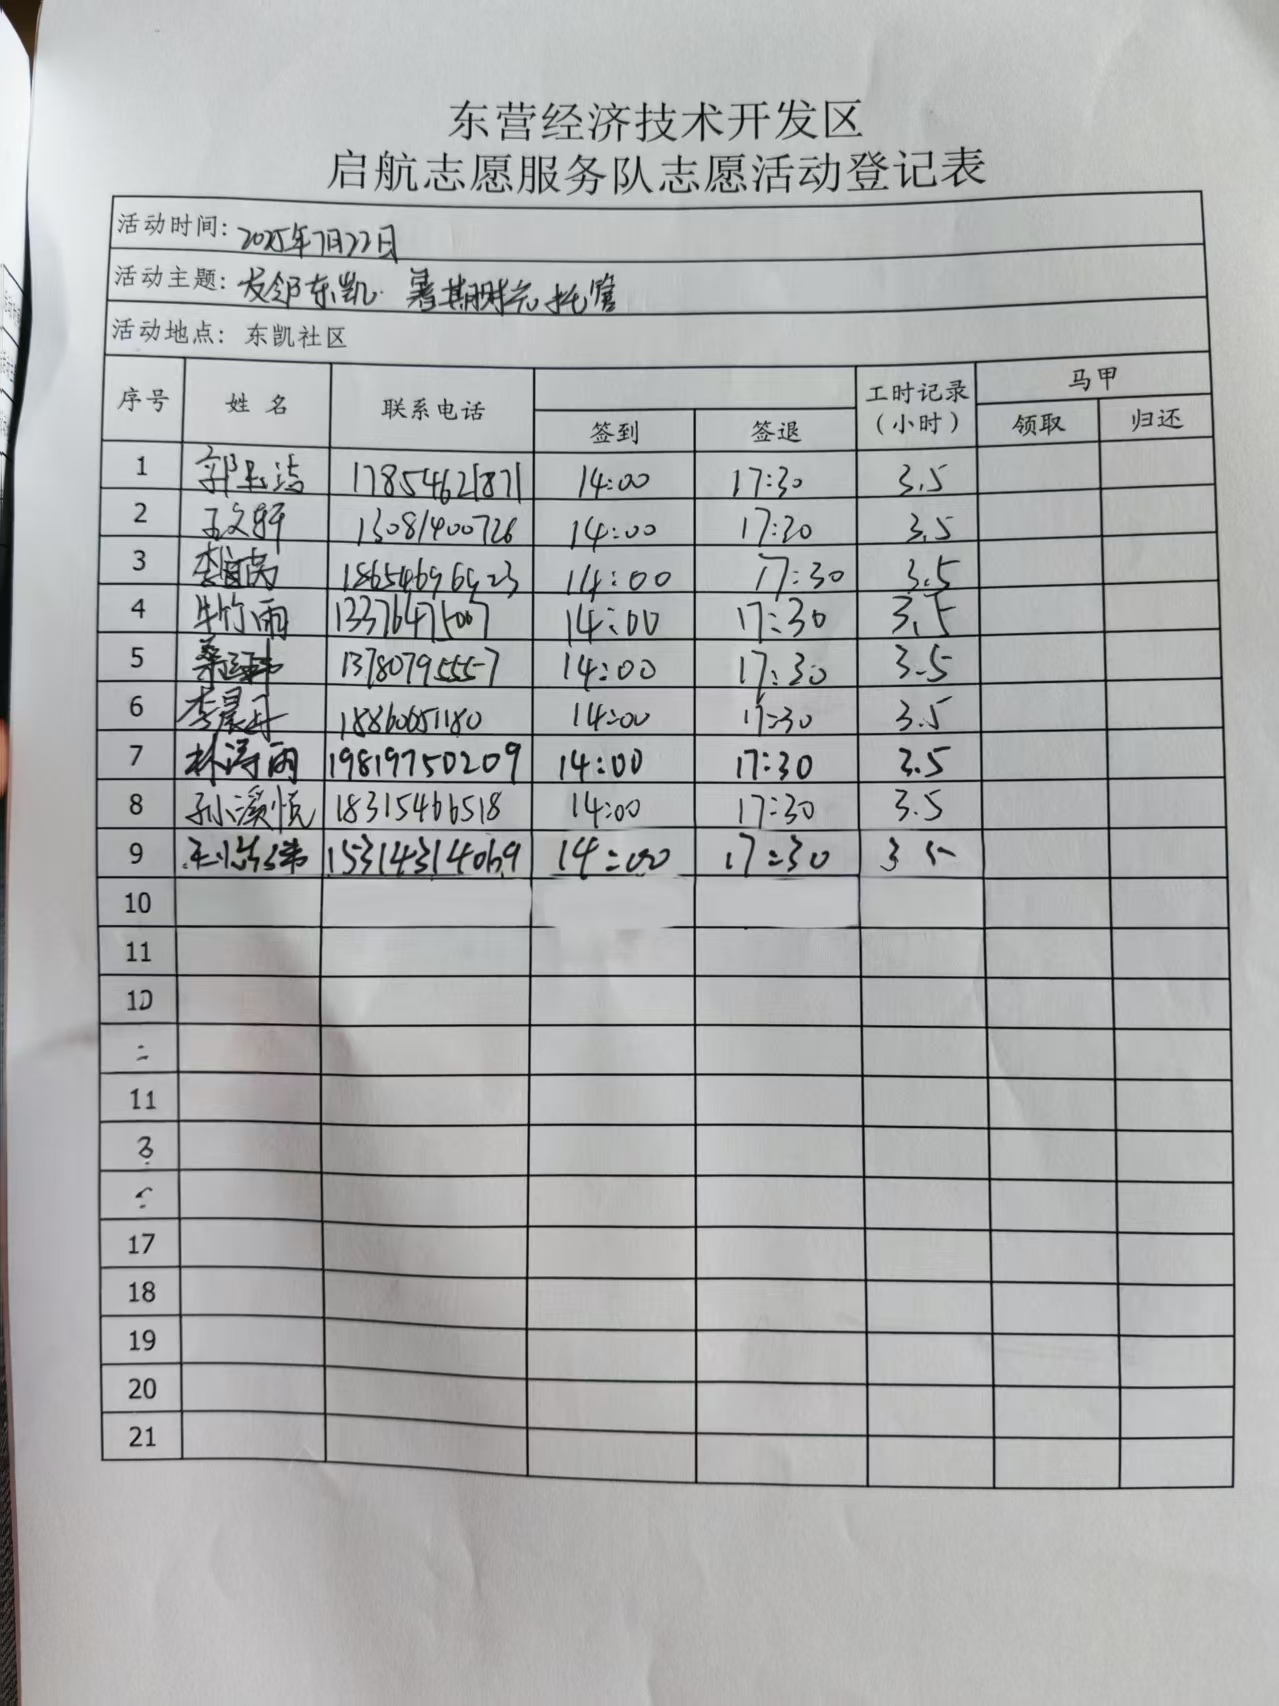 东营经济技术开发区
启航志愿服务队志愿活动登记表
活动时间: 2025年7月22日
活动主题: 友邻东凯 暑期 托管
活动地点: 东凯社区
序号 姓名 联系电话 签到 签退 工时记录(小时) 马甲 领取 归还
1 郭玉洁 17854621871 14:00 17:30 3.5
2 王文轩 13081400726 14:00 17:30 3.5
3 14:00 17:30 3.5
4 牛竹雨 13376475007 14:00 17:30 3.5
5 13780795557 14:00 17:30 3.5
6 李晨丹 18860651180 14:00 17:30 3.5
7 林涛雨 19819750209 14:00 17:30 3.5
8 孙溪悦 18315466518 14:00 17:30 3.5
9 15314314069 14:00 17:30 3.5
10
11
10
11
17
18
19
20
21